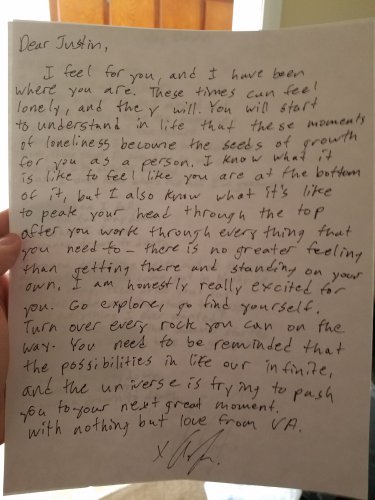 Dear Justin,
I feel for you, and I have been
where you are. These times can feel
lonely, and they will. You will start
to understand in life that these moments
of loneliness become the seeds of growth
for you as a person. I know what it
is like to feel like you are at the bottom
of it, but I also know what it's like
to peak your head through the top
after you work through everything that
you need to - there is no greater feeling
than getting there and standing on your
own. I am honestly really excited for
you. Go explore, go find yourself.
Turn over every rock you can on the
way. You need to be reminded that
the possibilities in life our infinite,
and the universe is trying to push
you to your next great moment.
with nothing but love from VA.
x